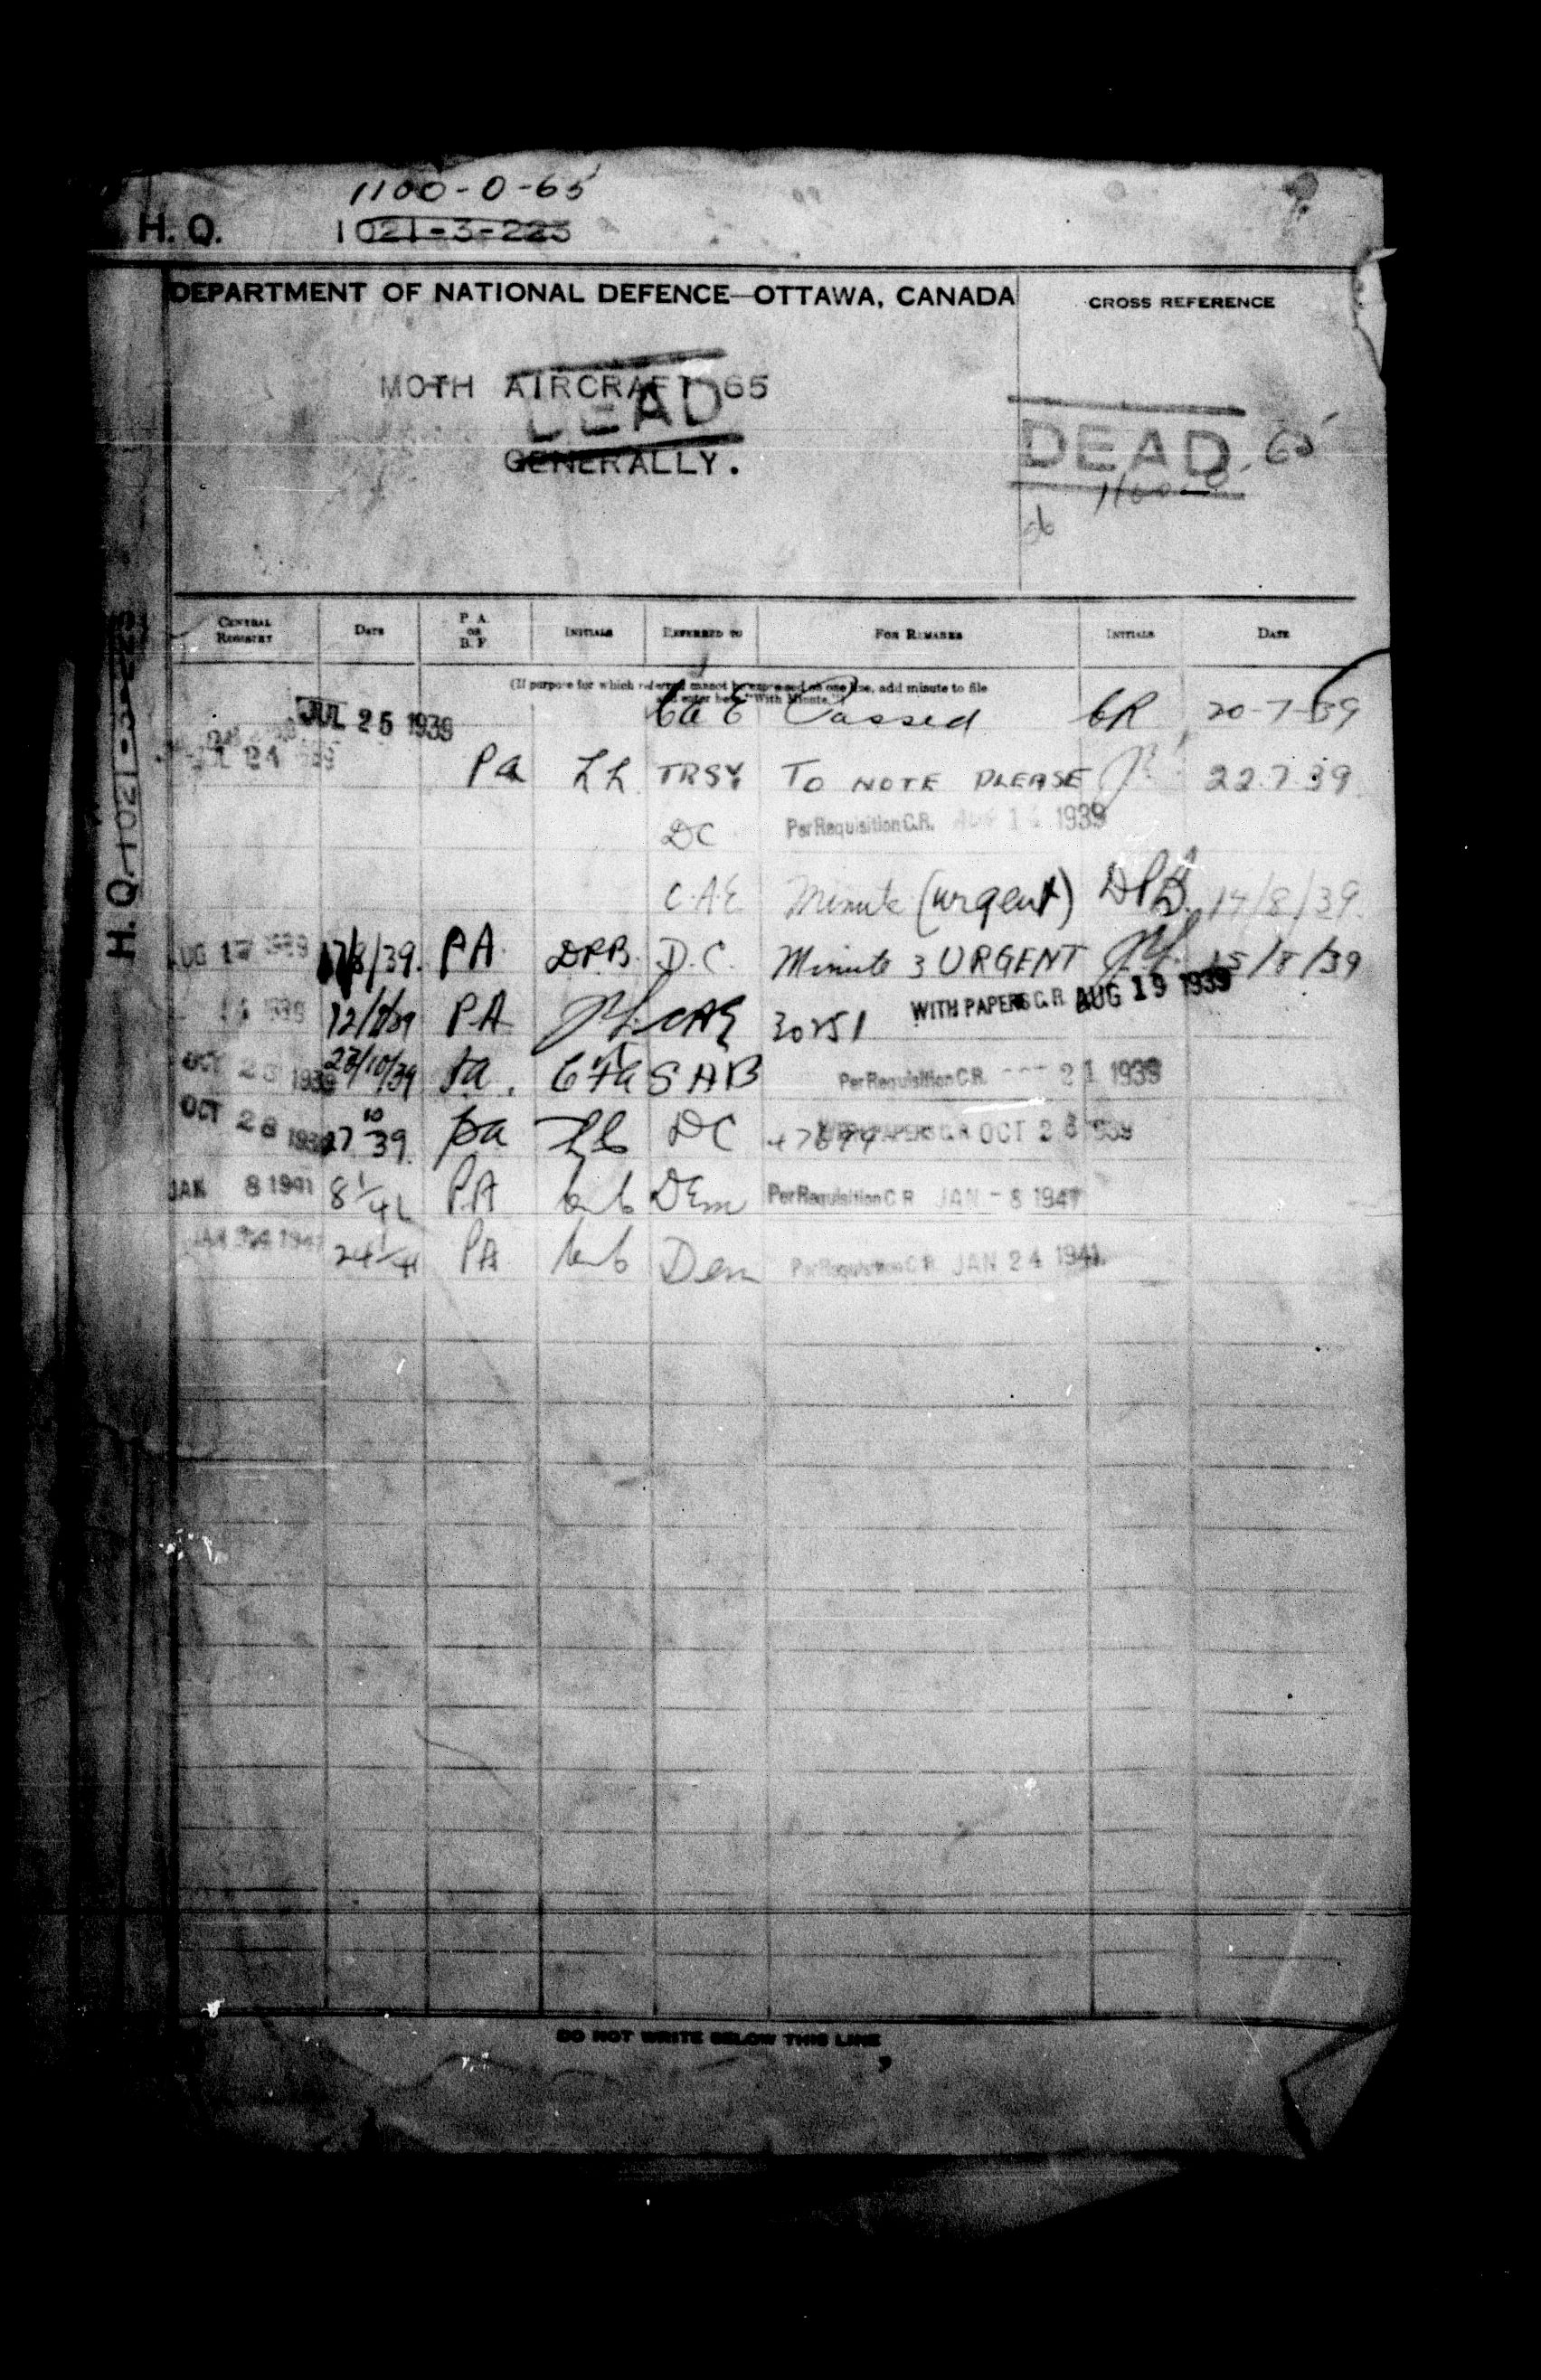 1100-0-65
H. Q. 1021-3-223
DEPARTMENT OF NATIONAL DEFENCE—OTTAWA, CANADA
CROSS REFERENCE
MOTH AIRCRAFT 65
DEAD
GENERALLY.
DEAD
65
H.Q. 1021-3-223
CENTRAL REGISTRY DATE P. A. OR B. F. INITIALS REFERRED TO FOR REMARKS INITIALS DATE
(If purpose for which referred cannot be expressed on one line, add minute to file
enter here "With Minute.")
JUL 25 1939 CAE Passed CR 20-7-39
JUL 24 1939 Pa LL TRSY TO NOTE PLEASE 22.7.39
DC Per Requisition C.R. AUG 1 1939
C.A.E Minute (urgent) DPB. 14/8/39.
AUG 17 1939 17/8/39. PA. DPB. D.C. Minute 3 URGENT 15/8/39
1939 PA CAE 30251 WITH PAPERS C.R. AUG 19 1939
OCT 23 1939 23/10/39 SAB Per Requisition C.R. OCT 21 1939
OCT 28 1939 27 10 39. pa DC WITH PAPERS C.R. OCT 26 1939
JAN 8 1941 8 1/41 PA DEm Per Requisition C.R. JAN - 8 1941
JAN 24 1941 24 1/41 PA Dem Per Requisition C.R. JAN 24 1941.
DO NOT WRITE BELOW THIS LINE